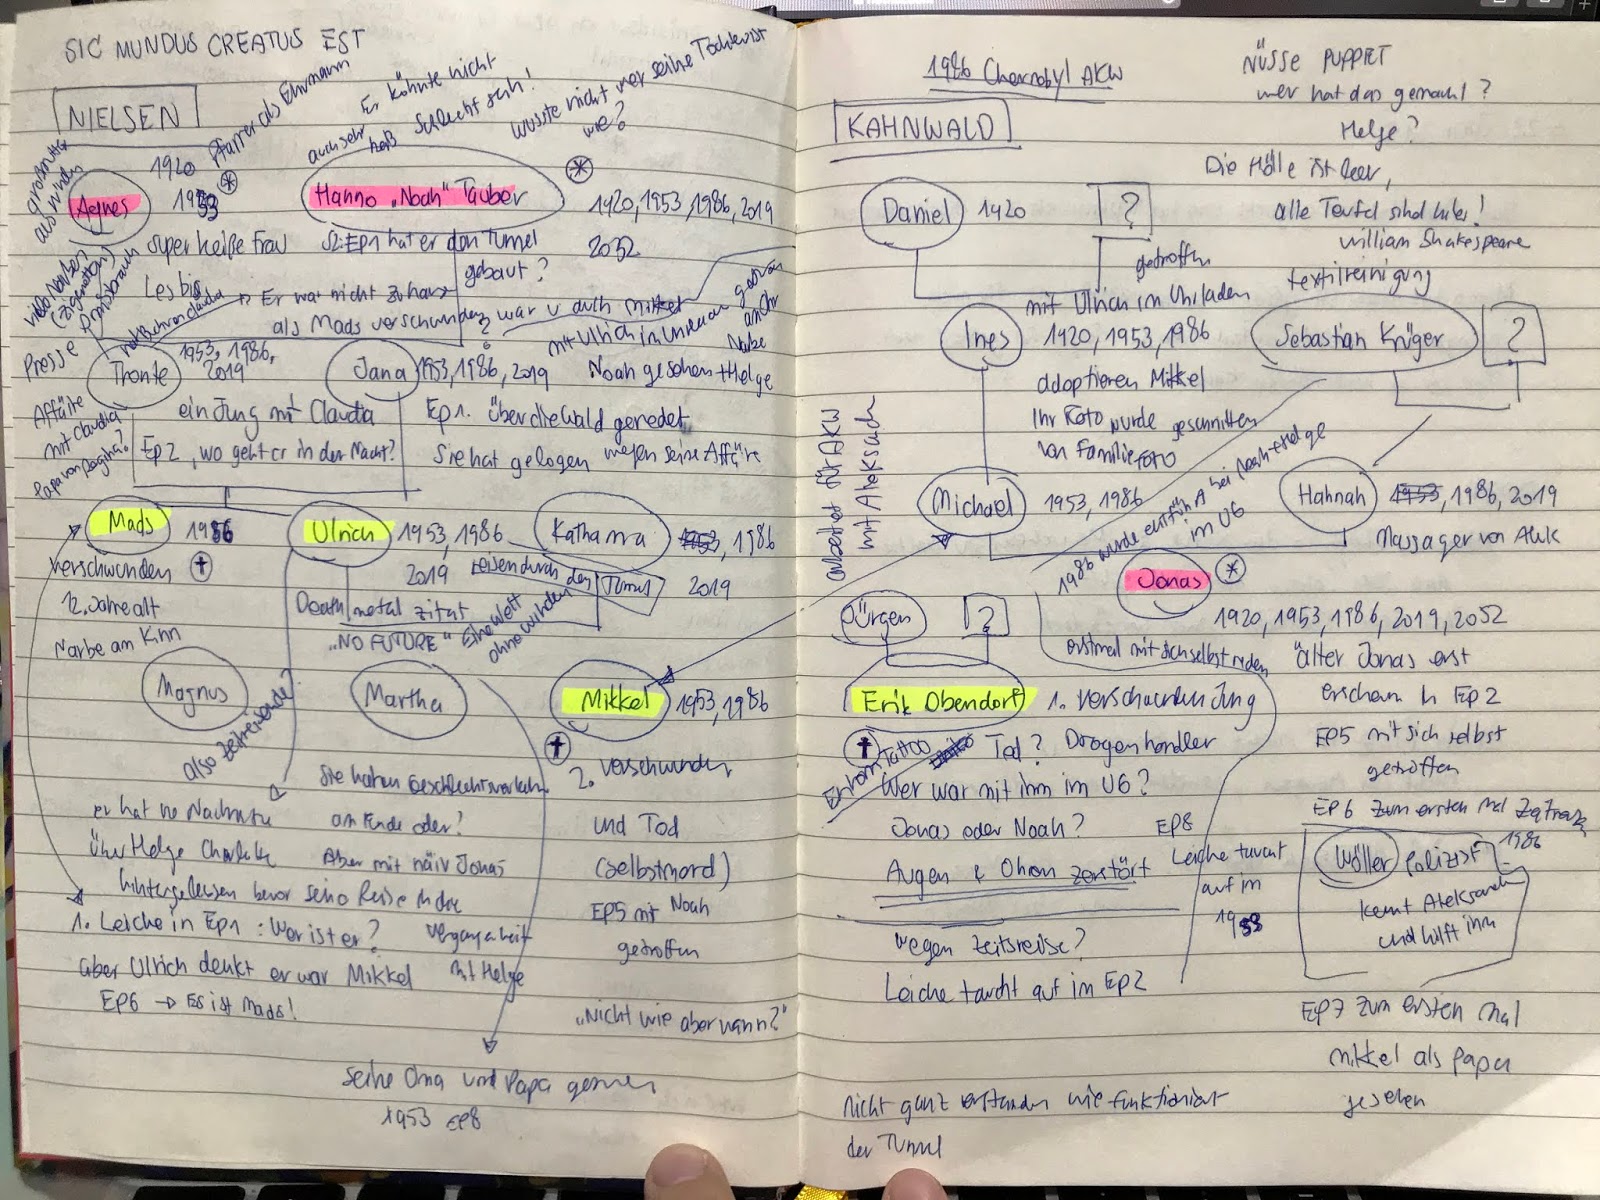 SIC MUNDUS CREATUS EST
NIELSEN
Pfarrer als Ehrmann
auch sehr heiß
Er könnte nicht
schlecht sein!
wusste nicht wer seine Tochter ist
wie?
1920
1953
Agnes
super heiße Frau
Lesbisch
Hanno „Noah" Tauber
1920, 1953, 1986, 2019
2052
S2:EP1 hat er den Tunnel
gebaut?
Er war nicht zuhause
als Mads verschwunden war
Presse
Affäre
mit Claudia
Papa von Regina?
Tronte
1953, 1986,
2019
ein Jung mit Claudia
EP2, wo geht er in der Nacht?
Jana
1953, 1986, 2019
Noah gesehen + Helge
EP1. über die Wald geredet
Sie hat gelogen wegen seine Affäre
Mads
1986
verschwunden
12 Jahre alt
Narbe am Kinn
Ulrich
1953, 1986
2019
Katharina
1953, 1986
2019
reisen durch den Tunnel
Death metal zitat
„NO FUTURE"
Eine Welt
ohne winden
Magnus
also zeitreisende?
Martha
Mikkel
1953, 1986
2. verschwunden
und Tod
(selbstmord)
EP5 mit Noah
getroffen
„Nicht wie aber wann?"
Sie haben Geschlechtsverkehr
am Ende oder?
Aber mit naiv Jonas
über Helge Charlotte
hintergelassen bevor seine Reise in die
Vergangenheit
mit Helge
1. Leiche in EP1: Wer ist er?
aber Ulrich denkt er war Mikkel
EP6 → Es ist Mads!
seine Oma und Papa
1953 EP8
1986 Chernobyl AKW
KAHNWALD
NÜSSE PUPPET
wer hat das gemacht?
Helge?
Die Hölle ist leer,
alle Teufel sind hier!
William Shakespeare
textilreinigung
Daniel
1920
?
getroffen
mit Ulrich im Uhrladen
Ines
1920, 1953, 1986
adoptieren Mikkel
Ihr Foto wurde geschnitten
von Familie FOTO
Sebastian Krüger
?
arbeitet für AKW
mit Aleksandr
Michael
1953, 1986
Hannah
1953, 1986, 2019
Massager von Alek
1986 wurde entführt bei Noah + Helge
im U6
Jonas
1920, 1953, 1986, 2019, 2052
erstmal mit sich selbst reden
älter Jonas erst
erschein in EP2
EP5 mit sich selbst
getroffen
EP6 zum ersten Mal
Jürgen
?
Erik Obendorf
1. verschwunden Jung
Tattoo
Tod? Drogenhandler
Wer war mit ihm im U6?
Jonas oder Noah?
Augen & Ohren zerstört
EP8
Leiche taucht
auf im
1953
wegen Zeitsreise?
Leiche taucht auf im EP2
Wöller
Polizist
1986
kennt Aleksandr
und hilft ihm
EP7 zum ersten Mal
mikkel als papa
gesehen
nicht ganz verstanden wie funktioniert
der Tunnel